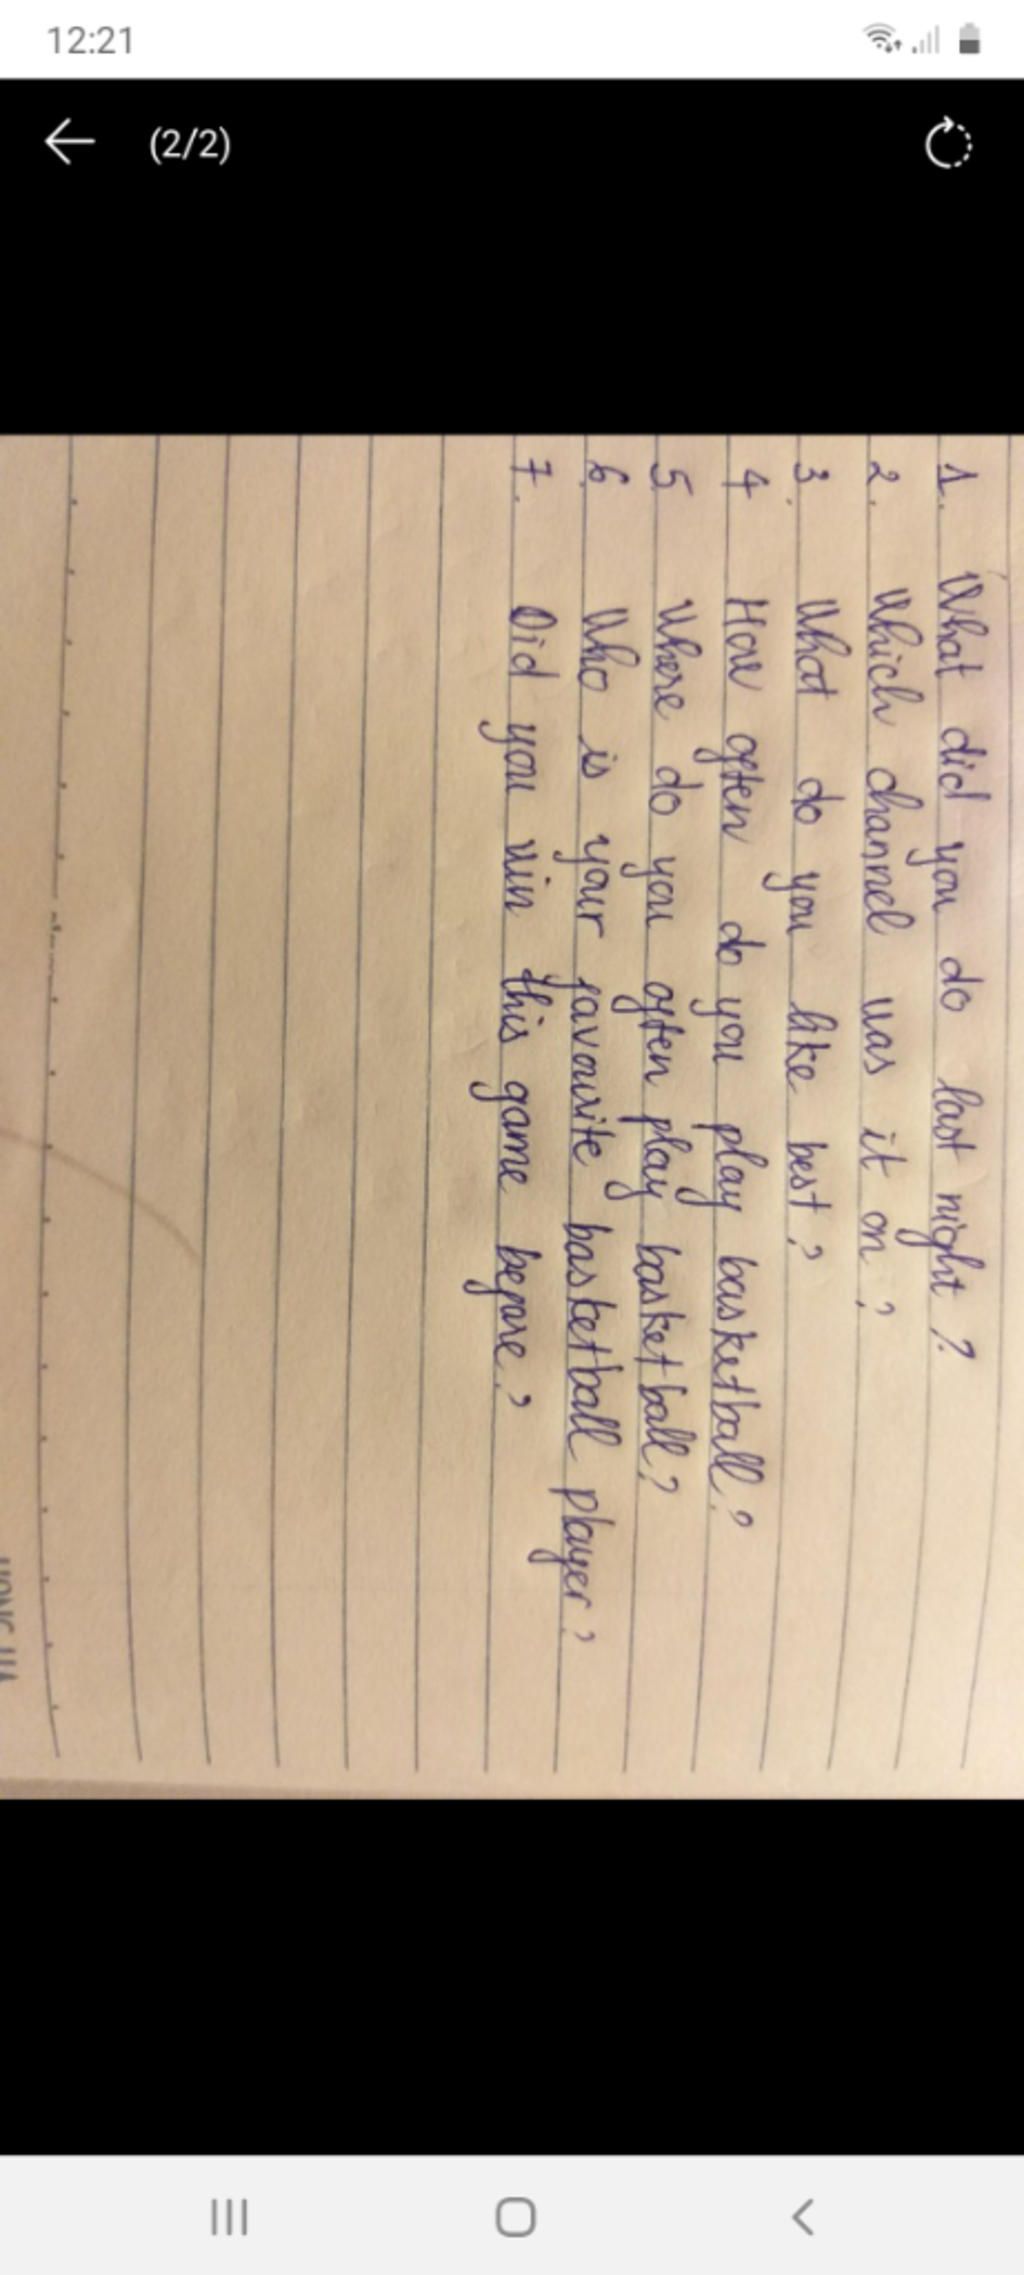 12:21
(2/2)
1. What did you do last night?
2. Which channel was it on?
3. What do you like best?
4 How often do you play basketball?
5 Where do you often play basketball?
6. Who is your favourite basketball player?
7. Did you win this game before?